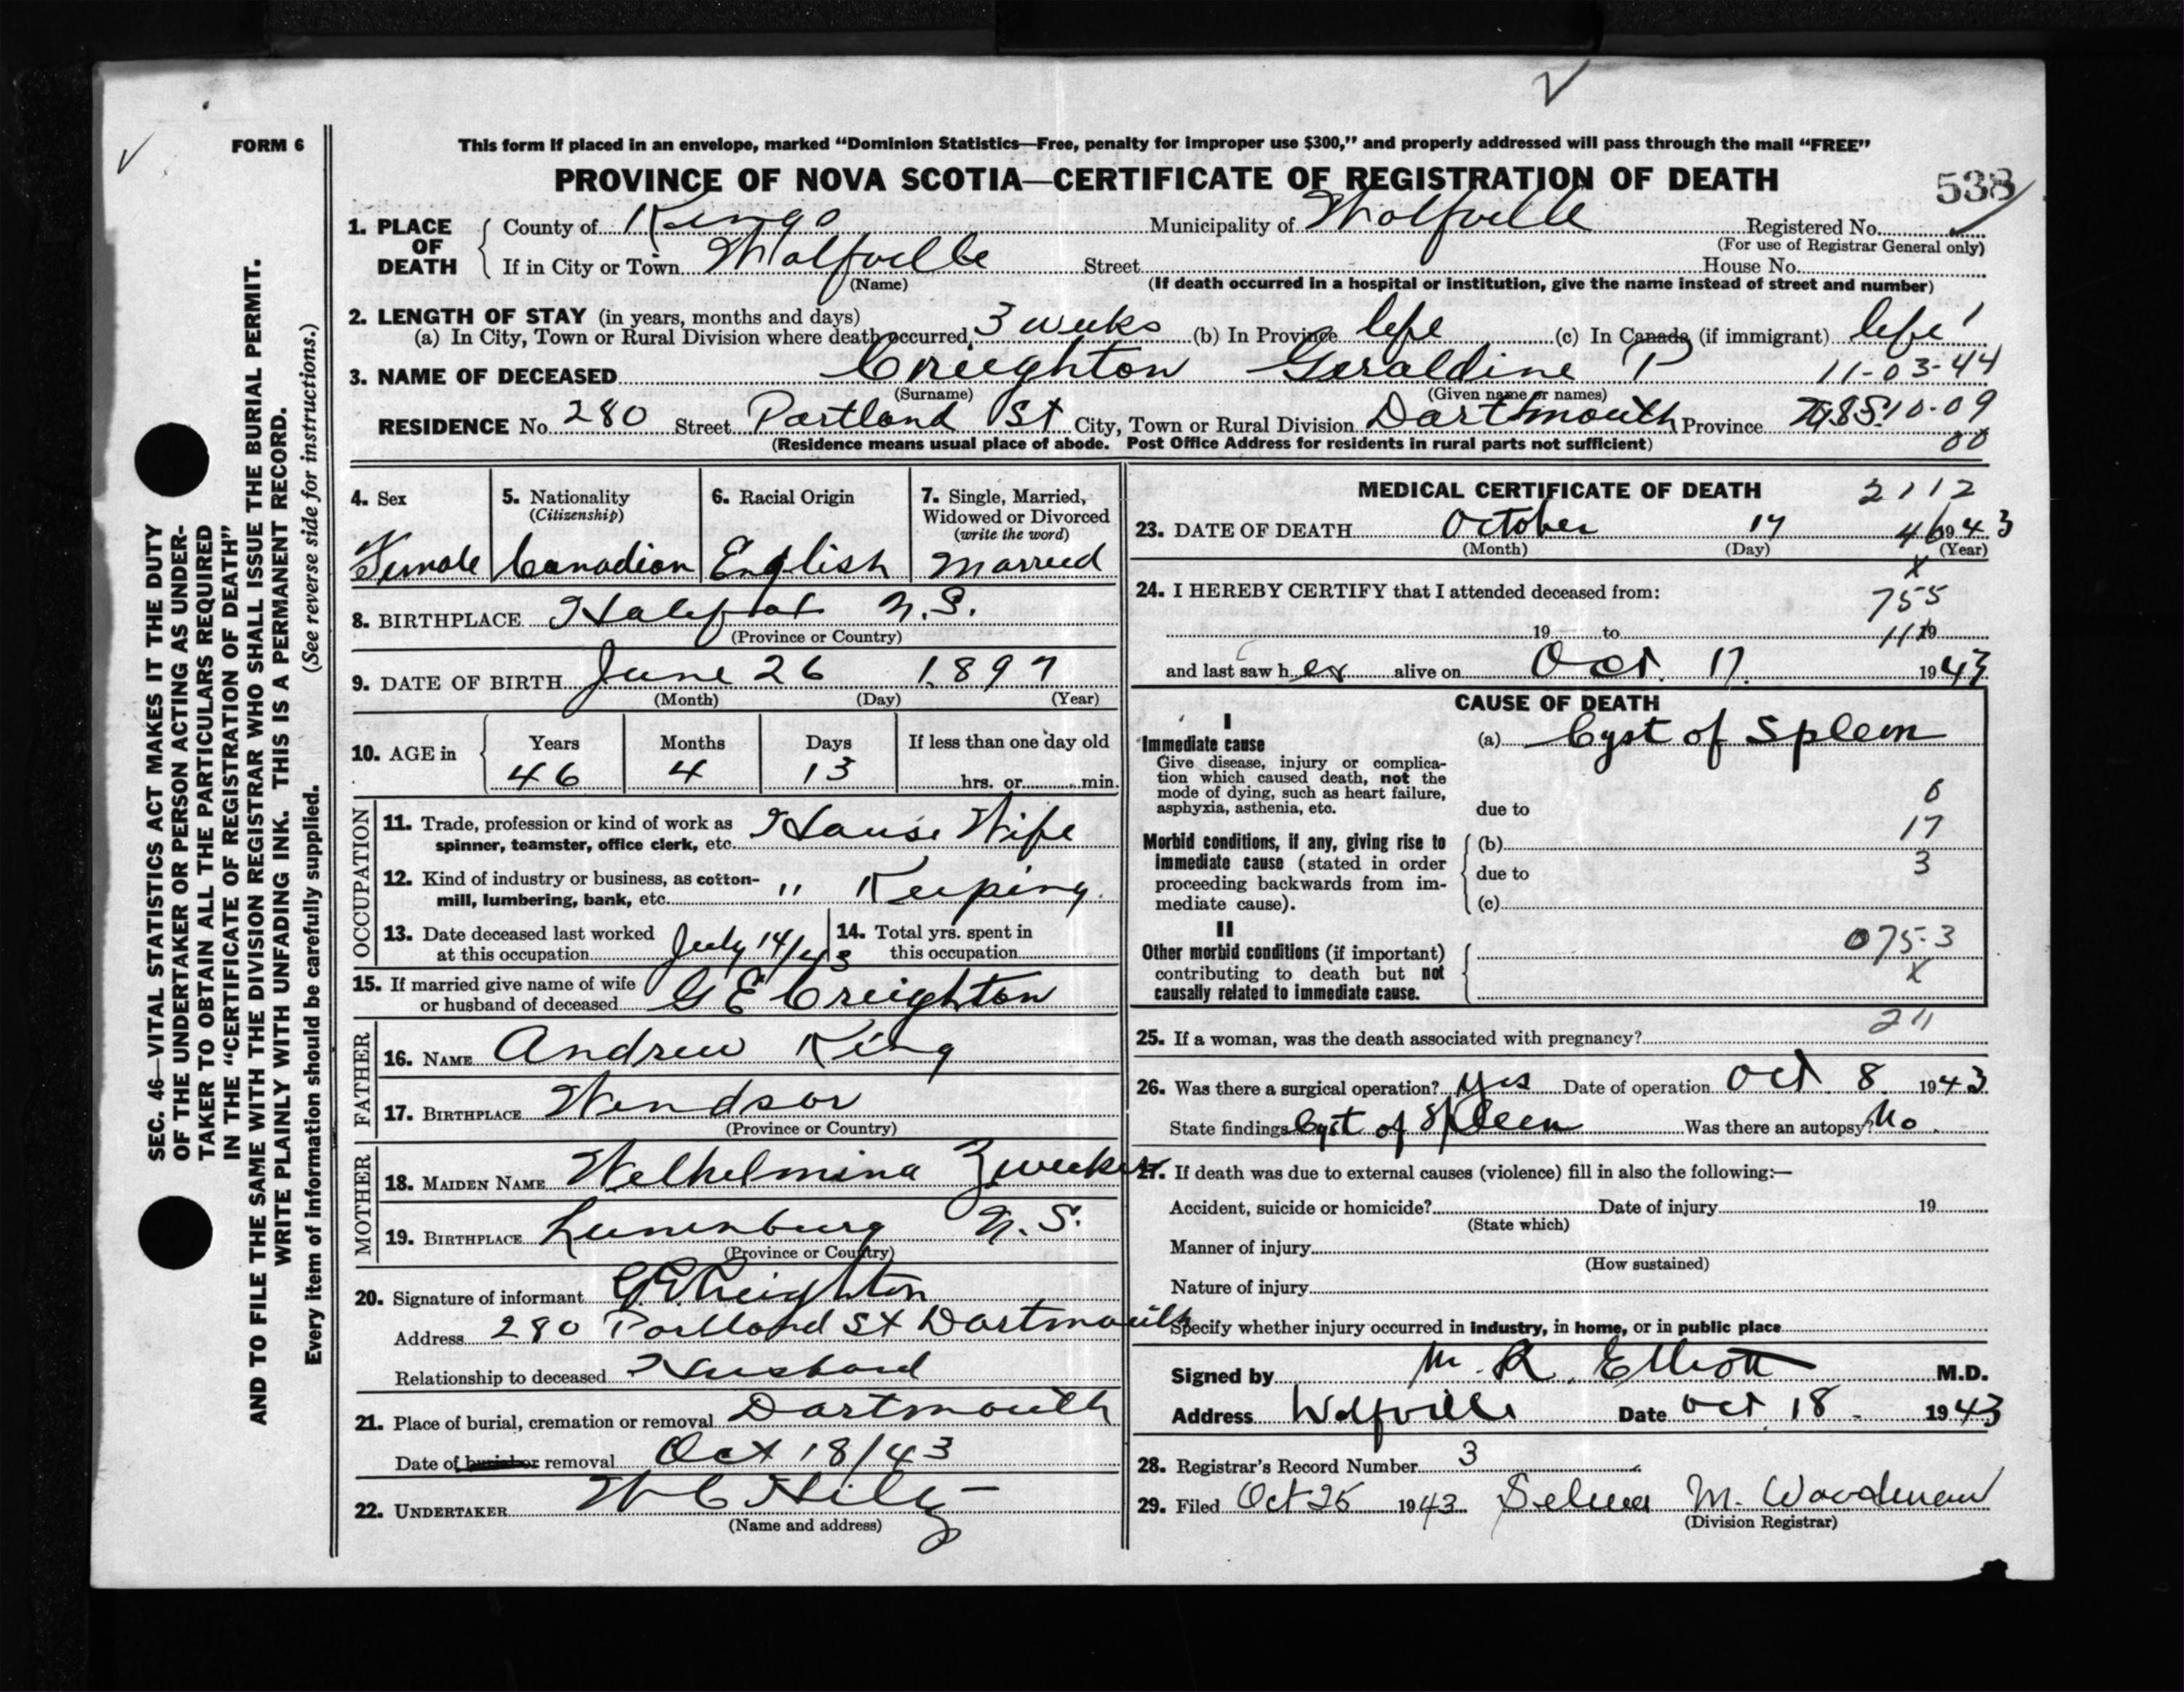 FORM 6
This form if placed in an envelope, marked “Dominion Statistics—Free, penalty for improper use $300,” and properly addressed will pass through the mail “FREE”
PROVINCE OF NOVA SCOTIA—CERTIFICATE OF REGISTRATION OF DEATH
538
1. PLACE OF DEATH
County of Kings Municipality of Wolfville Registered No.
(For use of Registrar General only)
If in City or Town Wolfville Street House No.
(Name) (If death occurred in a hospital or institution, give the name instead of street and number)
2. LENGTH OF STAY (in years, months and days)
(a) In City, Town or Rural Division where death occurred 3 weeks (b) In Province life (c) In Canada (if immigrant) life
3. NAME OF DECEASED Creighton Geraldine P 11-03-44
(Surname) (Given name or names)
RESIDENCE No. 280 Street Portland St City, Town or Rural Division Dartmouth Province N.S. 10-09
00
(Residence means usual place of abode. Post Office Address for residents in rural parts not sufficient)
4. Sex
Female
5. Nationality
(Citizenship)
Canadian
6. Racial Origin
English
7. Single, Married,
Widowed or Divorced
(write the word)
Married
8. BIRTHPLACE Halifax N.S.
(Province or Country)
9. DATE OF BIRTH June 26 1897
(Month) (Day) (Year)
10. AGE in
Years Months Days If less than one day old
46 4 13 hrs. or min.
OCCUPATION
11. Trade, profession or kind of work as
spinner, teamster, office clerk, etc. House Wife
12. Kind of industry or business, as cotton-
mill, lumbering, bank, etc. " Keeping
13. Date deceased last worked
at this occupation July 14/43
14. Total yrs. spent in
this occupation
15. If married give name of wife
or husband of deceased G E Creighton
FATHER
16. NAME Andrew King
17. BIRTHPLACE Windsor
(Province or Country)
MOTHER
18. MAIDEN NAME Welhelmina Zwicker
19. BIRTHPLACE Lunenburg N.S.
(Province or Country)
20. Signature of informant G E Creighton
Address 280 Portland St Dartmouth
Relationship to deceased Husband
21. Place of burial, cremation or removal Dartmouth
Date of burial or removal Oct 18/43
22. UNDERTAKER
(Name and address)
MEDICAL CERTIFICATE OF DEATH 2112
23. DATE OF DEATH October 17 1943
46
(Month) (Day) (Year)
x
24. I HEREBY CERTIFY that I attended deceased from:
755
19 to 19
11
and last saw her alive on Oct. 17. 1943
CAUSE OF DEATH
I
Immediate cause
Give disease, injury or complica-
tion which caused death, not the
mode of dying, such as heart failure,
asphyxia, asthenia, etc.
(a) Cyst of Spleen
6
due to
17
Morbid conditions, if any, giving rise to
immediate cause (stated in order
proceeding backwards from im-
mediate cause).
(b)
3
due to
(c)
II
Other morbid conditions (if important)
contributing to death but not
causally related to immediate cause.
075-3
x
211
25. If a woman, was the death associated with pregnancy?
26. Was there a surgical operation? Yes Date of operation Oct 8. 1943
State findings Cyst of Spleen Was there an autopsy? No.
27. If death was due to external causes (violence) fill in also the following:—
Accident, suicide or homicide? Date of injury 19
(State which)
Manner of injury
(How sustained)
Nature of injury
Specify whether injury occurred in industry, in home, or in public place
Signed by M. R. Elliott M.D.
Address Wolfville Date Oct 18 1943
28. Registrar's Record Number 3
29. Filed Oct 25 1943 M. Woodman
(Division Registrar)
SEC. 46—VITAL STATISTICS ACT MAKES IT THE DUTY
OF THE UNDERTAKER OR PERSON ACTING AS UNDER-
TAKER TO OBTAIN ALL THE PARTICULARS REQUIRED
IN THE “CERTIFICATE OF REGISTRATION OF DEATH”
AND TO FILE THE SAME WITH THE DIVISION REGISTRAR WHO SHALL ISSUE THE BURIAL PERMIT.
WRITE PLAINLY WITH UNFADING INK. THIS IS A PERMANENT RECORD.
Every item of information should be carefully supplied. (See reverse side for instructions.)